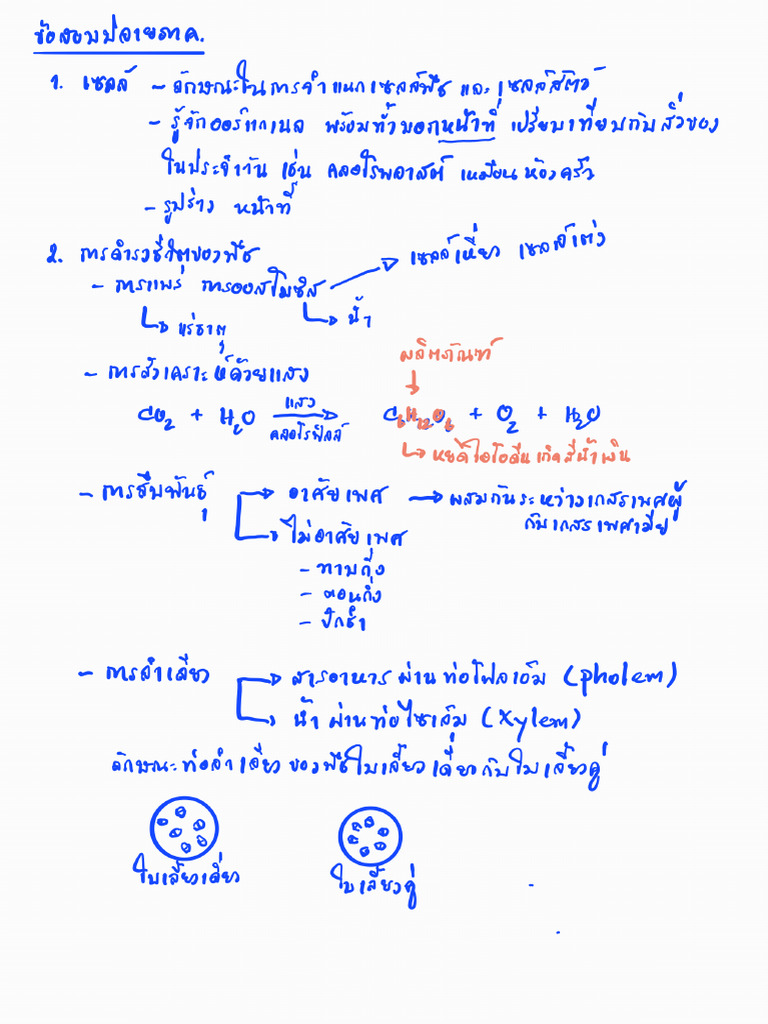 ข้อสอบปลายภาค.
1. เซลล์ - ลักษณะในการจำแนกเซลล์พืช และ เซลล์สัตว์
- รู้จักออร์แกเนล พร้อมทั้งบอกหน้าที่ เปรียบเทียบกับสิ่งของ
ในประจำวัน เช่น คลอโรพลาสต์ เหมือนห้องครัว
- รูปร่าง หน้าที่
2. การดำรงชีวิตของพืช
- การแพร่ การออสโมซิส → เซลล์เหี่ยว เซลล์เต่ง
↳ แร่ธาตุ ↳ น้ำ
ผลิตภัณฑ์
- การสังเคราะห์ด้วยแสง
CO2 + H2O แสง → คลอโรฟิลล์ C6H12O6 + O2 + H2O
↳ หยดไอโอดีนเกิดสีน้ำเงิน
- การสืบพันธุ์ → อาศัยเพศ → ผสมกันระหว่างเกสรเพศผู้
กับเกสรเพศเมีย
→ ไม่อาศัยเพศ
- ทาบกิ่ง
- ตอนกิ่ง
- ปักชำ
- การลำเลียง → สารอาหาร ผ่านท่อโฟลเอ็ม (pholem)
→ น้ำ ผ่านท่อไซเล็ม (Xylem)
ลักษณะท่อลำเลียงของพืชใบเลี้ยงเดี่ยวกับใบเลี้ยงคู่
ใบเลี้ยงเดี่ยว ใบเลี้ยงคู่